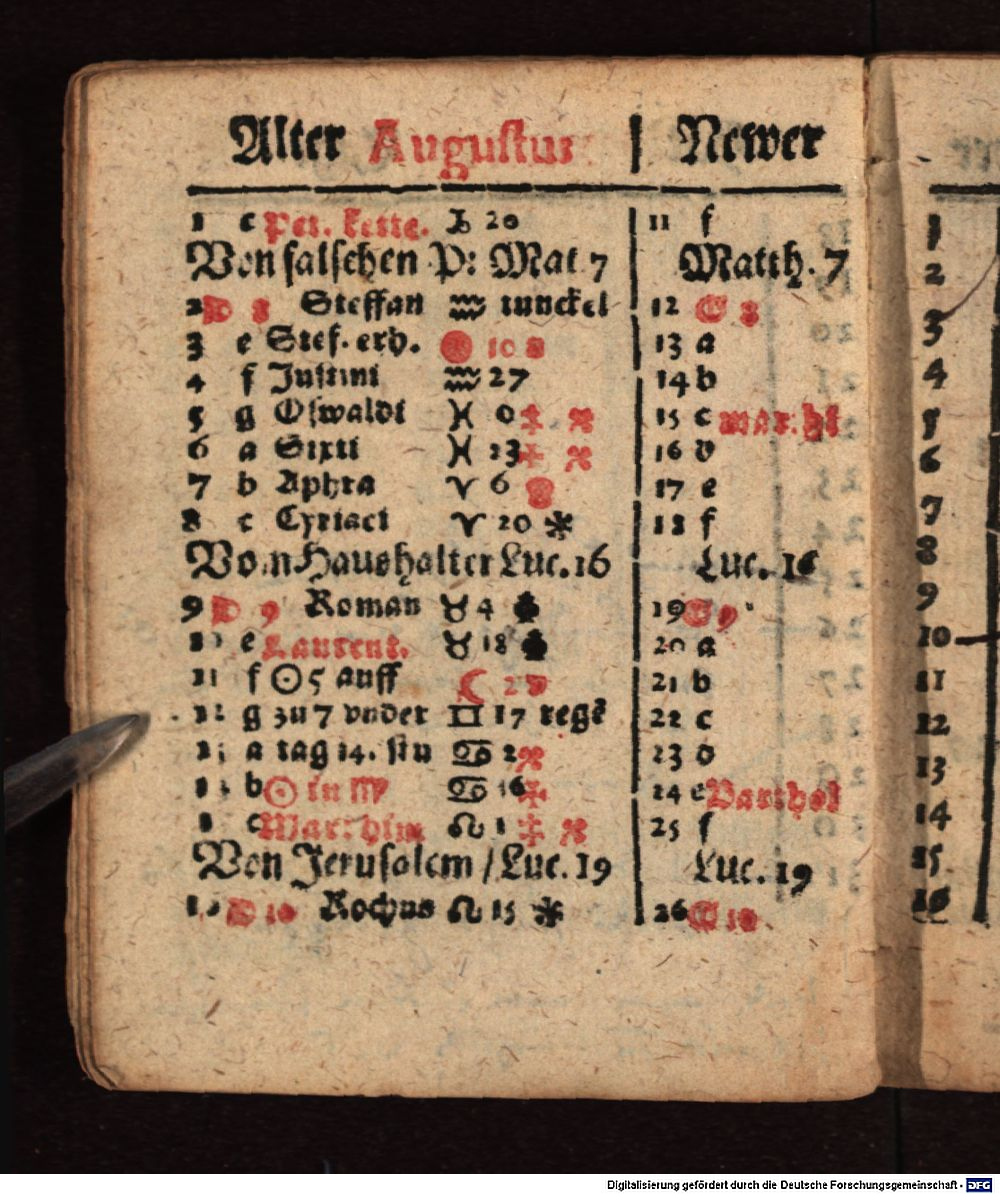 Alter Augustus | Newer
1 c Pet. kette. ♑ 20 | 11 f
Von falschen P: Mat 7 | Matth. 7
2 D 8 Steffan ♒ tunckel | 12 G 8
3 e Stef. erh. 10 8 | 13 a
4 f Justini ♒ 27 | 14 b
5 g Oswaldt ♓ 0 | 15 c mar. hi
6 a Sixti ♓ 23 | 16 d
7 b Aphra ♈ 6 | 17 e
8 c Cyriaci ♈ 20 ✻ | 18 f
Vom Haushalter Luc. 16 | Luc. 16
9 D 9 Roman ♉ 4 | 19 G 9
10 e Laurent. ♉ 18 | 20 a
11 f ☉ 5 auff ☾ 27 | 21 b
12 g zu 7 vnder ♊ 17 regē | 22 c
13 a tag 14. stu ♋ 2 | 23 d
b ☉ in ♍ ♋ 16 | 24 e Barthol
c Mar. him ♌ 1 | 25 f
Von Jerusalem / Luc. 19 | Luc. 19
D 10 Rochus ♌ 15 ✻ | 26 G 10
1
2
3
4
5
6
7
8
9
10
11
12
13
14
15
16
Digitalisierung gefördert durch die Deutsche Forschungsgemeinschaft - DFG